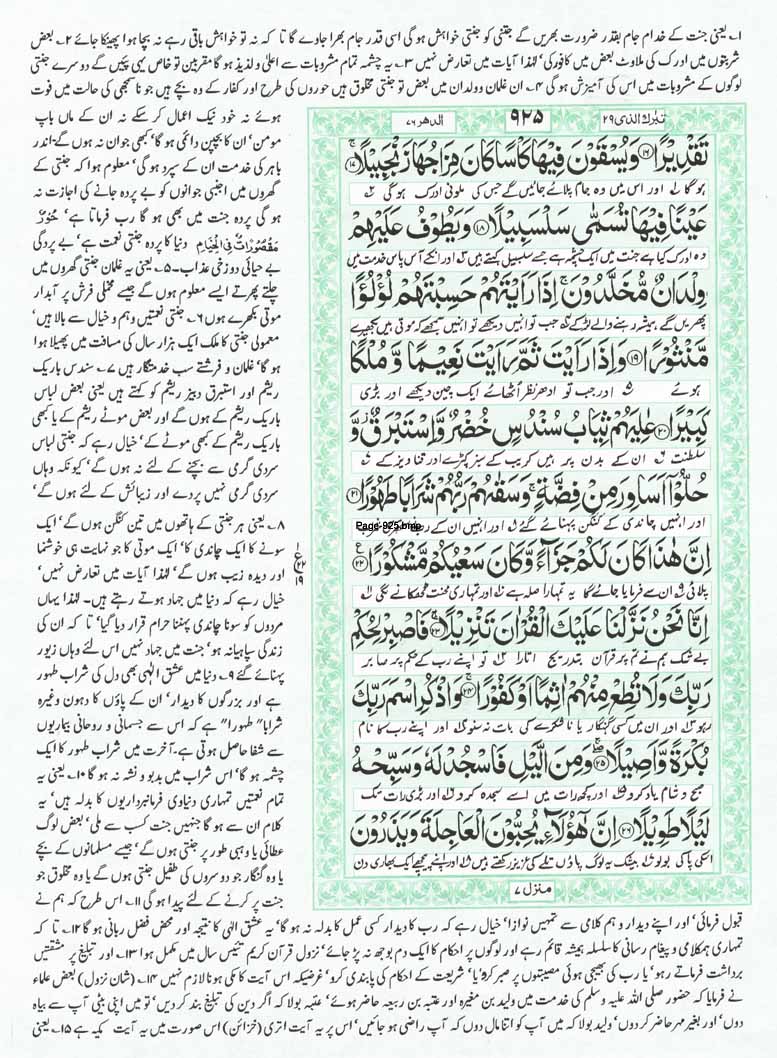 ۱۔ یعنی جنت کے خدام جام بقدر ضرورت بھریں گے جتنی کو جنتی خواہش ہوگی اسی قدر جام بھرا جاوے گا تا کہ نہ تو خواہش باقی رہے نہ بچا ہوا پھینکا جائے ۲۔ بعض
شربتوں میں ادرک کی ملاوٹ بعض میں کافور کی‘ لہٰذا آیات میں تعارض نہیں ۳۔ یہ چشمہ تمام مشروبات سے اعلیٰ و لذیذ ہو گا مقربین تو خاص یہی پئیں گے دوسرے جنتی
لوگوں کے مشروبات میں اس کی آمیزش ہو گی ۴۔ ان غلمان و ولدان میں بعض تو جنتی مخلوق ہیں حوروں کی طرح اور کفار کے وہ بچے ہیں جو ناسمجھی کی حالت میں فوت
تبٰرک الذی ۲۹ ۹۲۵ الدھر ۷۶
تَقْدِيْرًا ۱۶ وَيُسْقَوْنَ فِيْهَا كَاْسًا كَانَ مِزَاجُهَا زَنْجَبِيْلًا ۱۷
ہوگا لہ اور اس میں وہ جام پلائے جائیں گے جس کی ملونی ادرک ہوگی
عَيْنًا فِيْهَا تُسَمّٰى سَلْسَبِيْلًا ۱۸ وَيَطُوْفُ عَلَيْهِمْ
وہ ادرک کیا ہے جنت میں ایک چشمہ ہے جسے سلسبیل کہتے ہیں اور انکے آس پاس خدمت میں
وِلْدَانٌ مُّخَلَّدُوْنَ اِذَا رَاَيْتَهُمْ حَسِبْتَهُمْ لُؤْلُؤًا
پھریں گے ہمیشہ رہنے والے لڑکے جب تو انہیں دیکھے تو انہیں سمجھے کہ موتی ہیں بکھیرے
مَّنْثُوْرًا ۱۹ وَاِذَا رَاَيْتَ ثَمَّ رَاَيْتَ نَعِيْمًا وَّمُلْكًا
ہوئے اور جب تو ادھر نظر اٹھائے ایک چین دیکھے اور بڑی
كَبِيْرًا ۲۰ عٰلِيَهُمْ ثِيَابُ سُنْدُسٍ خُضْرٌ وَّاِسْتَبْرَقٌ وَّ
سلطنت ان کے بدن پر ہیں کریب کے سبز کپڑے اور قناویز کے
حُلُّوْٓا اَسَاوِرَ مِنْ فِضَّةٍ وَسَقٰهُمْ رَبُّهُمْ شَرَابًا طَهُوْرًا ۲۱
اور انہیں چاندی کے کنگن پہنائے گئے اور انہیں ان کے رب
Page-925.bmp
اِنَّ هٰذَا كَانَ لَكُمْ جَزَآءً وَّكَانَ سَعْيُكُمْ مَّشْكُوْرًا ۲۲
پلائی ان سے فرمایا جائے گا یہ تمہارا صلہ ہے اور تمہاری محنت ٹھکانے لگی
اِنَّا نَحْنُ نَزَّلْنَا عَلَيْكَ الْقُرْاٰنَ تَنْزِيْلًا ۲۳ فَاصْبِرْ لِحُكْمِ
بے شک ہم نے تم پر قرآن بتدریج اتارا تو اپنے رب کے حکم پر صابر
رَبِّكَ وَلَا تُطِعْ مِنْهُمْ اٰثِمًا اَوْ كَفُوْرًا ۲۴ وَاذْكُرِ اسْمَ رَبِّكَ
رہو اور ان میں کسی گنہگار یا ناشکرے کی بات نہ سنو اور اپنے رب کا نام
بُكْرَةً وَّاَصِيْلًا ۲۵ وَمِنَ الَّيْلِ فَاسْجُدْ لَهٗ وَسَبِّحْهُ
صبح و شام یاد کرو اور کچھ رات میں اسے سجدہ کرو اور بڑی رات تک
لَيْلًا طَوِيْلًا ۲۶ اِنَّ هٰٓؤُلَآءِ يُحِبُّوْنَ الْعَاجِلَةَ وَيَذَرُوْنَ
اسکی پاکی بولو بیشک یہ لوگ پاؤں تلے کی عزیز رکھتے ہیں اور اپنے پیچھے ایک بھاری دن
منزل ۷
ہوئے نہ خود نیک اعمال کر سکے نہ ان کے ماں باپ
مومن‘ ان کا بچپن دائمی ہو گا‘ کبھی جوان نہ ہوں گے۔ اندر
باہر کی خدمت ان کے سپرد ہو گی‘ معلوم ہوا کہ جنتی کے
گھروں میں اجنبی جوانوں کو بے پردہ جانے کی اجازت نہ
ہو گی پردہ جنت میں بھی ہو گا رب فرماتا ہے‘ حُوْرٌ
مَّقْصُوْرَاتٌ فِی الْخِیَامِ دنیا کا پردہ جنتی نعمت ہے‘ بے پردگی
بے حیائی دوزخی عذاب۔ ۵۔ یعنی یہ غلمان جنتی گھروں میں
چلتے پھرتے ایسے معلوم ہوں گے جیسے مخملی فرش پر آبدار
موتی بکھرے ہوں ۶۔ جنتی نعمتیں وہم و خیال سے بالا ہیں‘
معمولی جنتی کا ملک ایک ہزار سال کی مسافت میں پھیلا ہوا
ہو گا‘ غلمان و فرشتے سب خدمتگار ہیں ۷۔ سندس باریک
ریشم اور استبرق دبیز ریشم کو کہتے ہیں یعنی بعض لباس
باریک ریشم کے ہوں گے اور بعض موٹے ریشم کے یا کبھی
باریک ریشم کے کبھی موٹے کے‘ خیال رہے کہ جنتی لباس
سردی گرمی سے بچنے کے لئے نہ ہوں گے‘ کیونکہ وہاں
سردی گرمی نہیں پردے اور زیبائش کے لئے ہوں گے‘
۸۔ یعنی ہر جنتی کے ہاتھوں میں تین کنگن ہوں گے‘ ایک
سونے کا ایک چاندی کا‘ ایک موتی کا جو نہایت ہی خوشنما
اور دیدہ زیب ہوں گے‘ لہٰذا آیات میں تعارض نہیں‘
خیال رہے کہ دنیا میں جہاد ہوتے رہتے ہیں۔ لہٰذا یہاں
مردوں کو سونا چاندی پہننا حرام قرار دیا گیا‘ تا کہ ان کی
زندگی سپاہیانہ ہو‘ جنت میں جہاد نہیں اس لئے وہاں زیور
پہنائے گئے ۹۔ دنیا میں عشق الٰہی بھی دل کی شراب طہور
ہے اور بزرگوں کا دیدار‘ ان کے پاؤں کا دھون وغیرہ
شرابا" طہورا" ہے کہ اس سے جسمانی و روحانی بیماریوں
سے شفا حاصل ہوتی ہے۔ آخرت میں شراب طہور کا ایک
چشمہ ہو گا‘ اس شراب میں بدبو و نشہ نہ ہو گا ۱۰۔ یعنی یہ
تمام نعمتیں تمہاری دنیاوی فرمانبرداریوں کا بدلہ ہیں‘ یہ
کلام ان سے ہو گا جنہیں جنت کسب سے ملی‘ بعض لوگ
عطائی یا وہبی طور پر جنتی ہوں گے‘ جیسے مسلمانوں کے بچے
یا وہ گنہگار جو دوسروں کی طفیل جنتی ہوں گے یا وہ مخلوق جو
جنت پر کرنے کے لئے پیدا ہو گی ۱۱۔ اس طرح کہ ہم نے
قبول فرمائی‘ اور اپنے دیدار و ہم کلامی سے تمہیں نوازا‘ خیال رہے کہ رب کا دیدار کسی عمل کا بدلہ نہ ہو گا‘ یہ عشق الٰہی کا نتیجہ اور محض فضل ربانی ہو گا ۱۲۔ تا کہ
تمہاری ہمکلامی و پیغام رسانی کا سلسلہ ہمیشہ قائم رہے اور لوگوں پر احکام کا ایک دم بوجھ نہ پڑ جائے‘ نزول قرآن کریم تئیس سال میں مکمل ہوا ۱۳۔ اور تبلیغ پر مشقتیں
برداشت فرماتے رہو‘ یا رب کی بھیجی ہوئی مصیبتوں پر صبر کرو‘ یا‘ شریعت کے احکام کی پابندی کرو‘ غرضیکہ اس آیت کا مکی ہونا لازم نہیں ۱۴۔ (شان نزول) بعض علماء
نے فرمایا کہ حضور صلی اللہ علیہ و سلم کی خدمت میں ولید بن مغیرہ اور عتبہ بن ربیعہ حاضر ہوئے‘ عتبہ بولا کہ اگر دین کی تبلیغ بند کر دیں‘ تو میں اپنی بیٹی آپ سے بیاہ
دوں‘ اور بغیر مہر حاضر کر دوں‘ ولید بولا کہ میں آپ کو اتنا مال دوں کہ آپ راضی ہو جائیں‘ اس پر یہ آیت اتری (خزائن) اس صورت میں یہ آیت مکیہ ہے ۱۵۔ یعنی